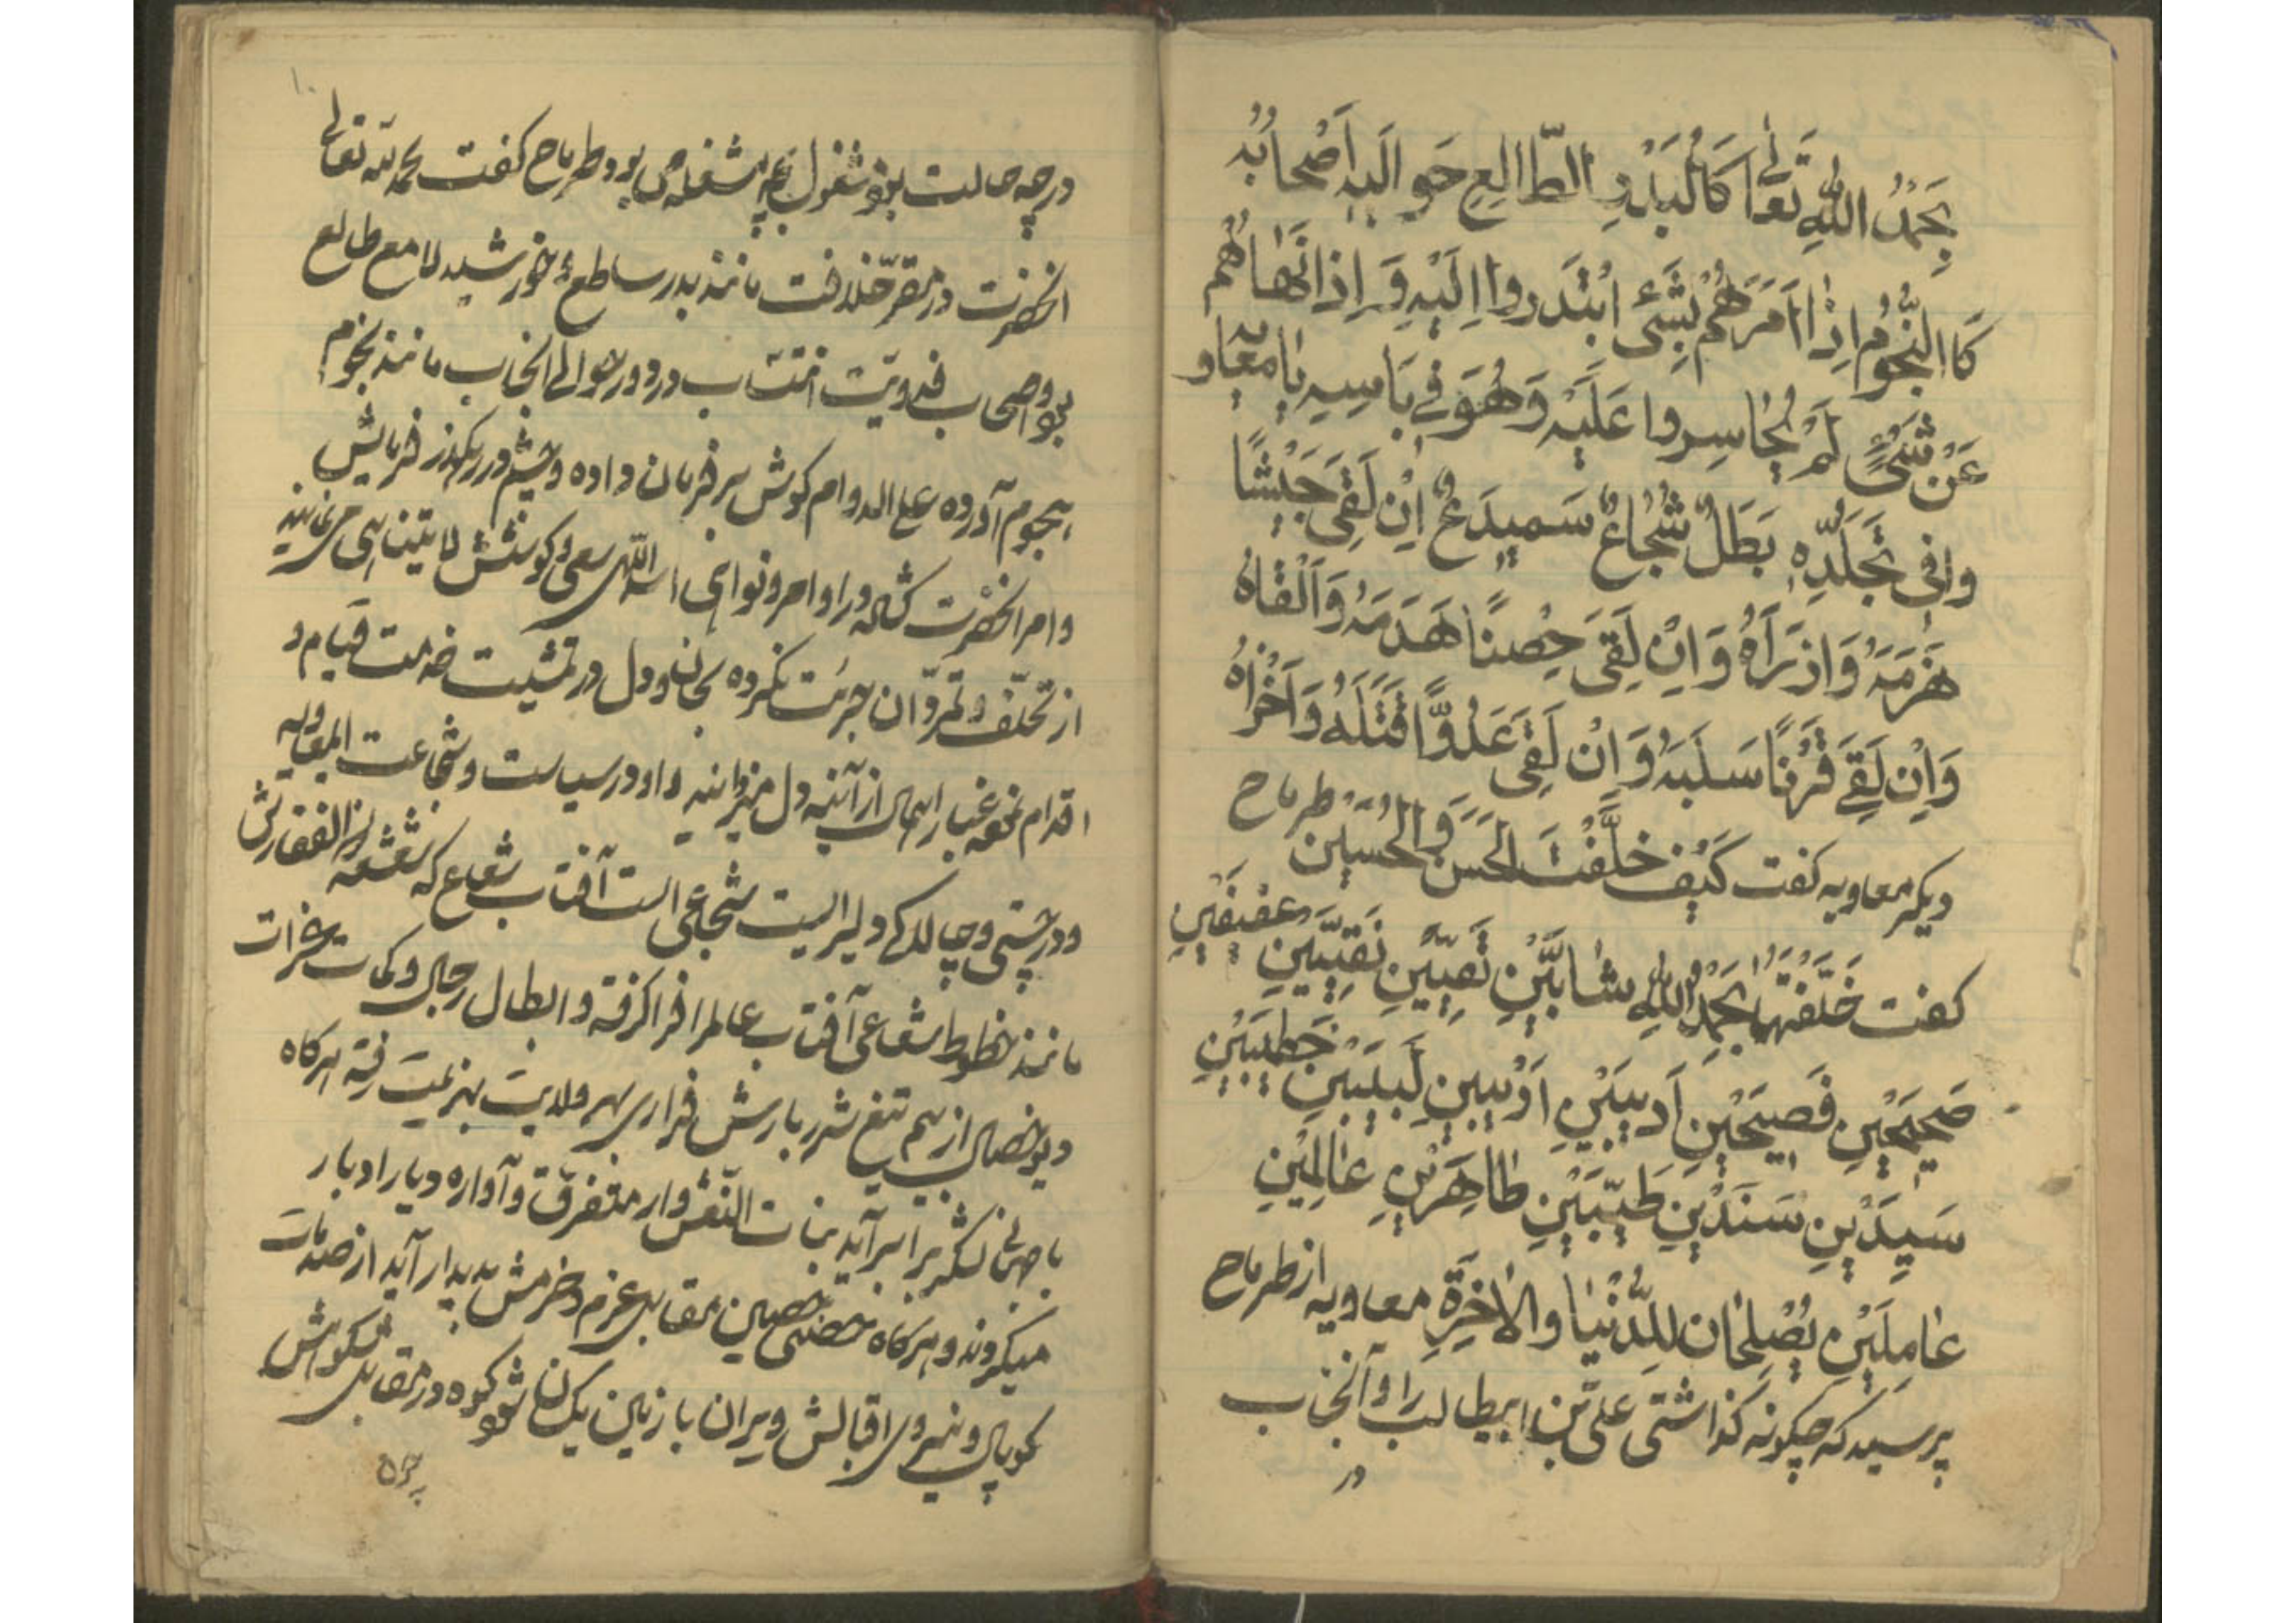 بِحَمْدُ اللّٰهِ تَعٰالٰی کَالْبَدْرِ الطّٰالِعِ حَوٰالَیْهِ اَصْحٰابُهُ
کَاالنُّجُوْمِ اِذٰا اَمَرَهُمْ بِشَیْءٍ اَبْتَدَرُوا اِلَیْهِ وَ اِذٰا نَهٰاهُمْ
عَنْ شَیْءٍ لَمْ یُجٰاسِروا عَلَیْهِ وَهُوَ فی بَأسِهِ یٰا مُعٰاویه
وافی تَجَلُّدِهِ بَطَلٌ شُجٰاعٌ سَمیدَعٌ اِنْ لَقِیَ جَیْشًا
هَزَمَهُ وَاذرَاهُ وَ اِنْ لَقِیَ حِصْنًا هَدَمَهُ وَ اَلْقٰاهُ
وَ اِنْ لَقِیَ قَرْنًا سَلَبَهُ وَ اِنْ لَقِیَ عَدُوًّا قَتَلَهُ وَ اَخْزٰاهُ
دیگر معاویه کفت کَیْفَ خَلَّفْتَ الْحَسَنَ وَ الْحُسَیْنَ طرماح
کفت خَلَّفْتُهُمٰا بِحَمْدُ اللّٰهِ شٰابَّیْنِ تَقِیَّیْنِ نَقِیَّیْنِ عَفیفَیْنِ
صَحیحَیْنِ فَصیحَیْنِ اَدیبَیْنِ اَوْیبینِ لَبیبَیْنِ خَطیبَیْنِ
سَیِّدَیْنِ سَنَدَیْنِ طَیِّبَیْنِ طٰاهِرَیْنِ عٰالِمَیْنِ
عٰامِلَیْنِ یُصْلِحٰان لِلدُّنْیٰا والاٰخِرَةِ معاویه از طرماح
پرسید که چکونه کذاشتی علی بن ابیطالب را و آنجناب
در
۱۰
درچه حالت بود شغول بچه مشغله می بود طرماح کفت بحمد الله تعالی
انحضرت در مقر خلافت مانند بدر ساطع و خورشید لامع طالع
بود و اصحاب فدویت انتساب در دور و حوالی انجناب مانند نجوم
هجوم آورده علی الدوام کوش بر فرمان داده و چشم در رهکذر فرمایش
وامر انحضرت کشاده در اوامر و نواهی اسد اللهی سعی و کوشش لا یتناهی می نمایند
از تخلّف و تمرّد آن جرئت نکرده بجان و دل در تمشیت خدمت قیام و
اقدام نموده غبار اهمال از آئینه دل میزدانید و او در سیاست و شجاعت ایمعاویه
و درشتی و چالاکی دلیر الیست شجاعی است آفتاب شعاع که شعشعه ذو الفقارش
مانند خطوط شعاعی آفتاب عالم را فرا کرفته و ابطال رجال و کمات غزات
دیو خصال از سهم تیغ شرر بارش فراری بهر ولایت بهزیمت رفته هرکاه
با هر لشکر برابر آید بنات النّعش وار متفرق و آواره دیار ادبار
میکردند و هرکاه حصنی حصین بمقابل عزم و حزمش پدیدار آید از صدمات
کوپال و نیروی اقبالش ویران با زمین یکسان شود و کوه در مقابل شکوهش